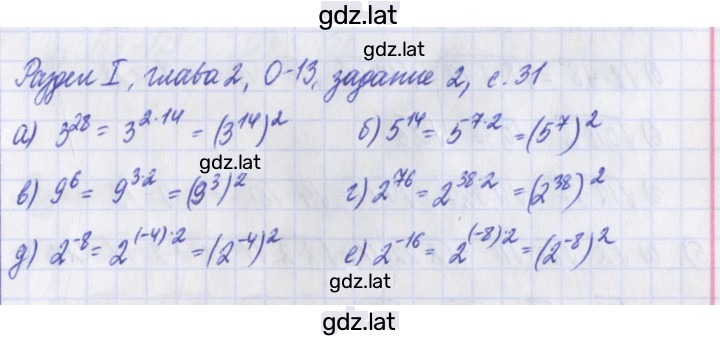 gdz.lat
gdz.lat
Раздел I, глава 2, О-13, задание 2, с. 31
а) 3^28 = 3^2·14 = (3^14)^2 б) 5^14 = 5^-7·2 = (5^7)^2
gdz.lat
в) 9^6 = 9^3·2 = (9^3)^2 г) 2^76 = 2^38·2 = (2^38)^2
д) 2^-8 = 2^(-4)·2 = (2^-4)^2 е) 2^-16 = 2^(-8)·2 = (2^-8)^2
gdz.lat
gdz.lat